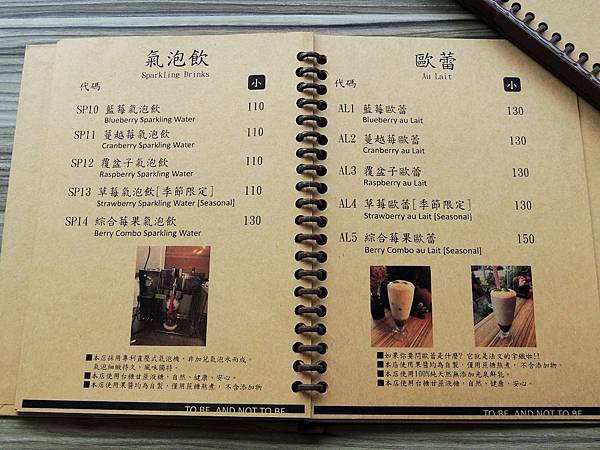 氣泡飲
Sparkling Drinks
代碼 小
SP10 藍莓氣泡飲 110
Blueberry Sparkling Water
SP11 蔓越莓氣泡飲 110
Cranberry Sparkling Water
SP12 覆盆子氣泡飲 110
Raspberry Sparkling Water
SP13 草莓氣泡飲[季節限定] 110
Strawberry Sparkling Water [Seasonal]
SP14 綜合莓果氣泡飲 130
Berry Combo Sparkling Water
■本店採用專利直壓式氣泡機，非加兌氣泡水而成。
氣泡細緻持久，風味獨特。
■本店使用台糖甘蔗液糖，自然、健康、安心。
■本店使用果醬均為自製，僅用蔗糖熬煮，不含添加物
TO BE, AND NOT TO BE
歐蕾
Au Lait
代碼 小
AL1 藍莓歐蕾 130
Blueberry au Lait
AL2 蔓越莓歐蕾 130
Cranberry au Lait
AL3 覆盆子歐蕾 130
Raspberry au Lait
AL4 草莓歐蕾[季節限定] 130
Strawberry au Lait [Seasonal]
AL5 綜合莓果歐蕾 150
Berry Combo au Lait [Seasonal]
■如果你要問歐蕾是什麼? 它就是法文的拿鐵啦!!
■本店使用果醬均為自製，僅用蔗糖熬煮，不含添加物.
■本店使用100%純天然無添加光泉鮮乳。
■本店使用台糖甘蔗液糖，自然、健康、安心。
TO BE, AND NOT TO BE